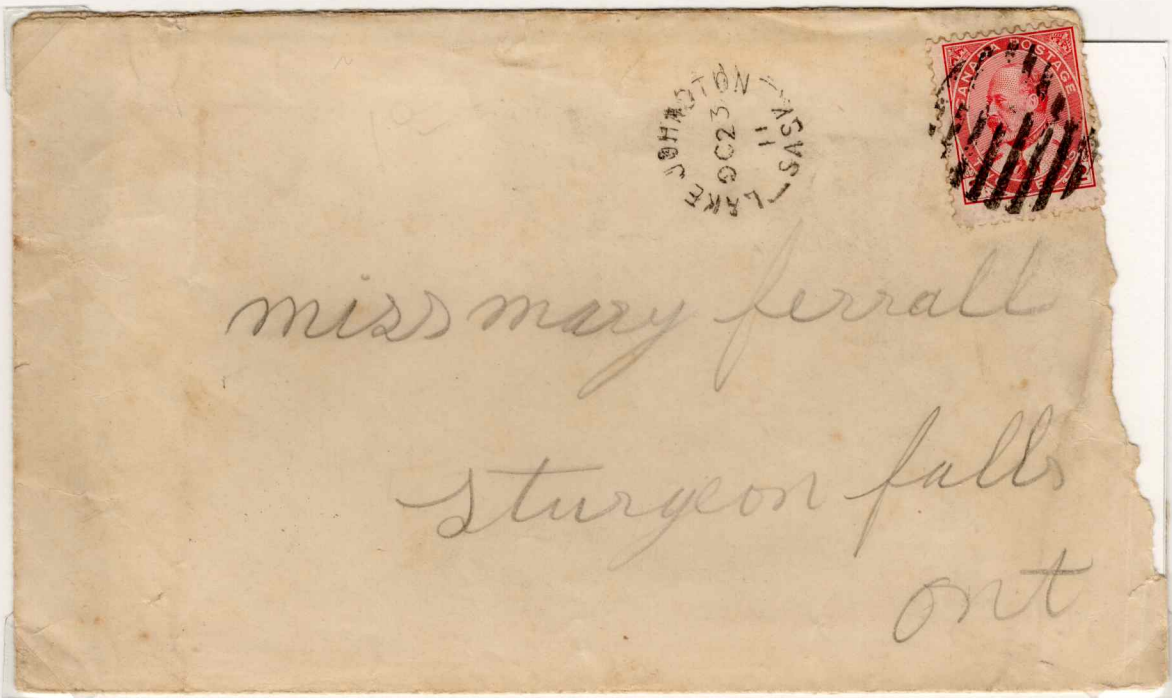 LAKE JOHNSTON SASK
OC 23
11
CANADA POSTAGE
miss mary ferrall
sturgeon falls
ont